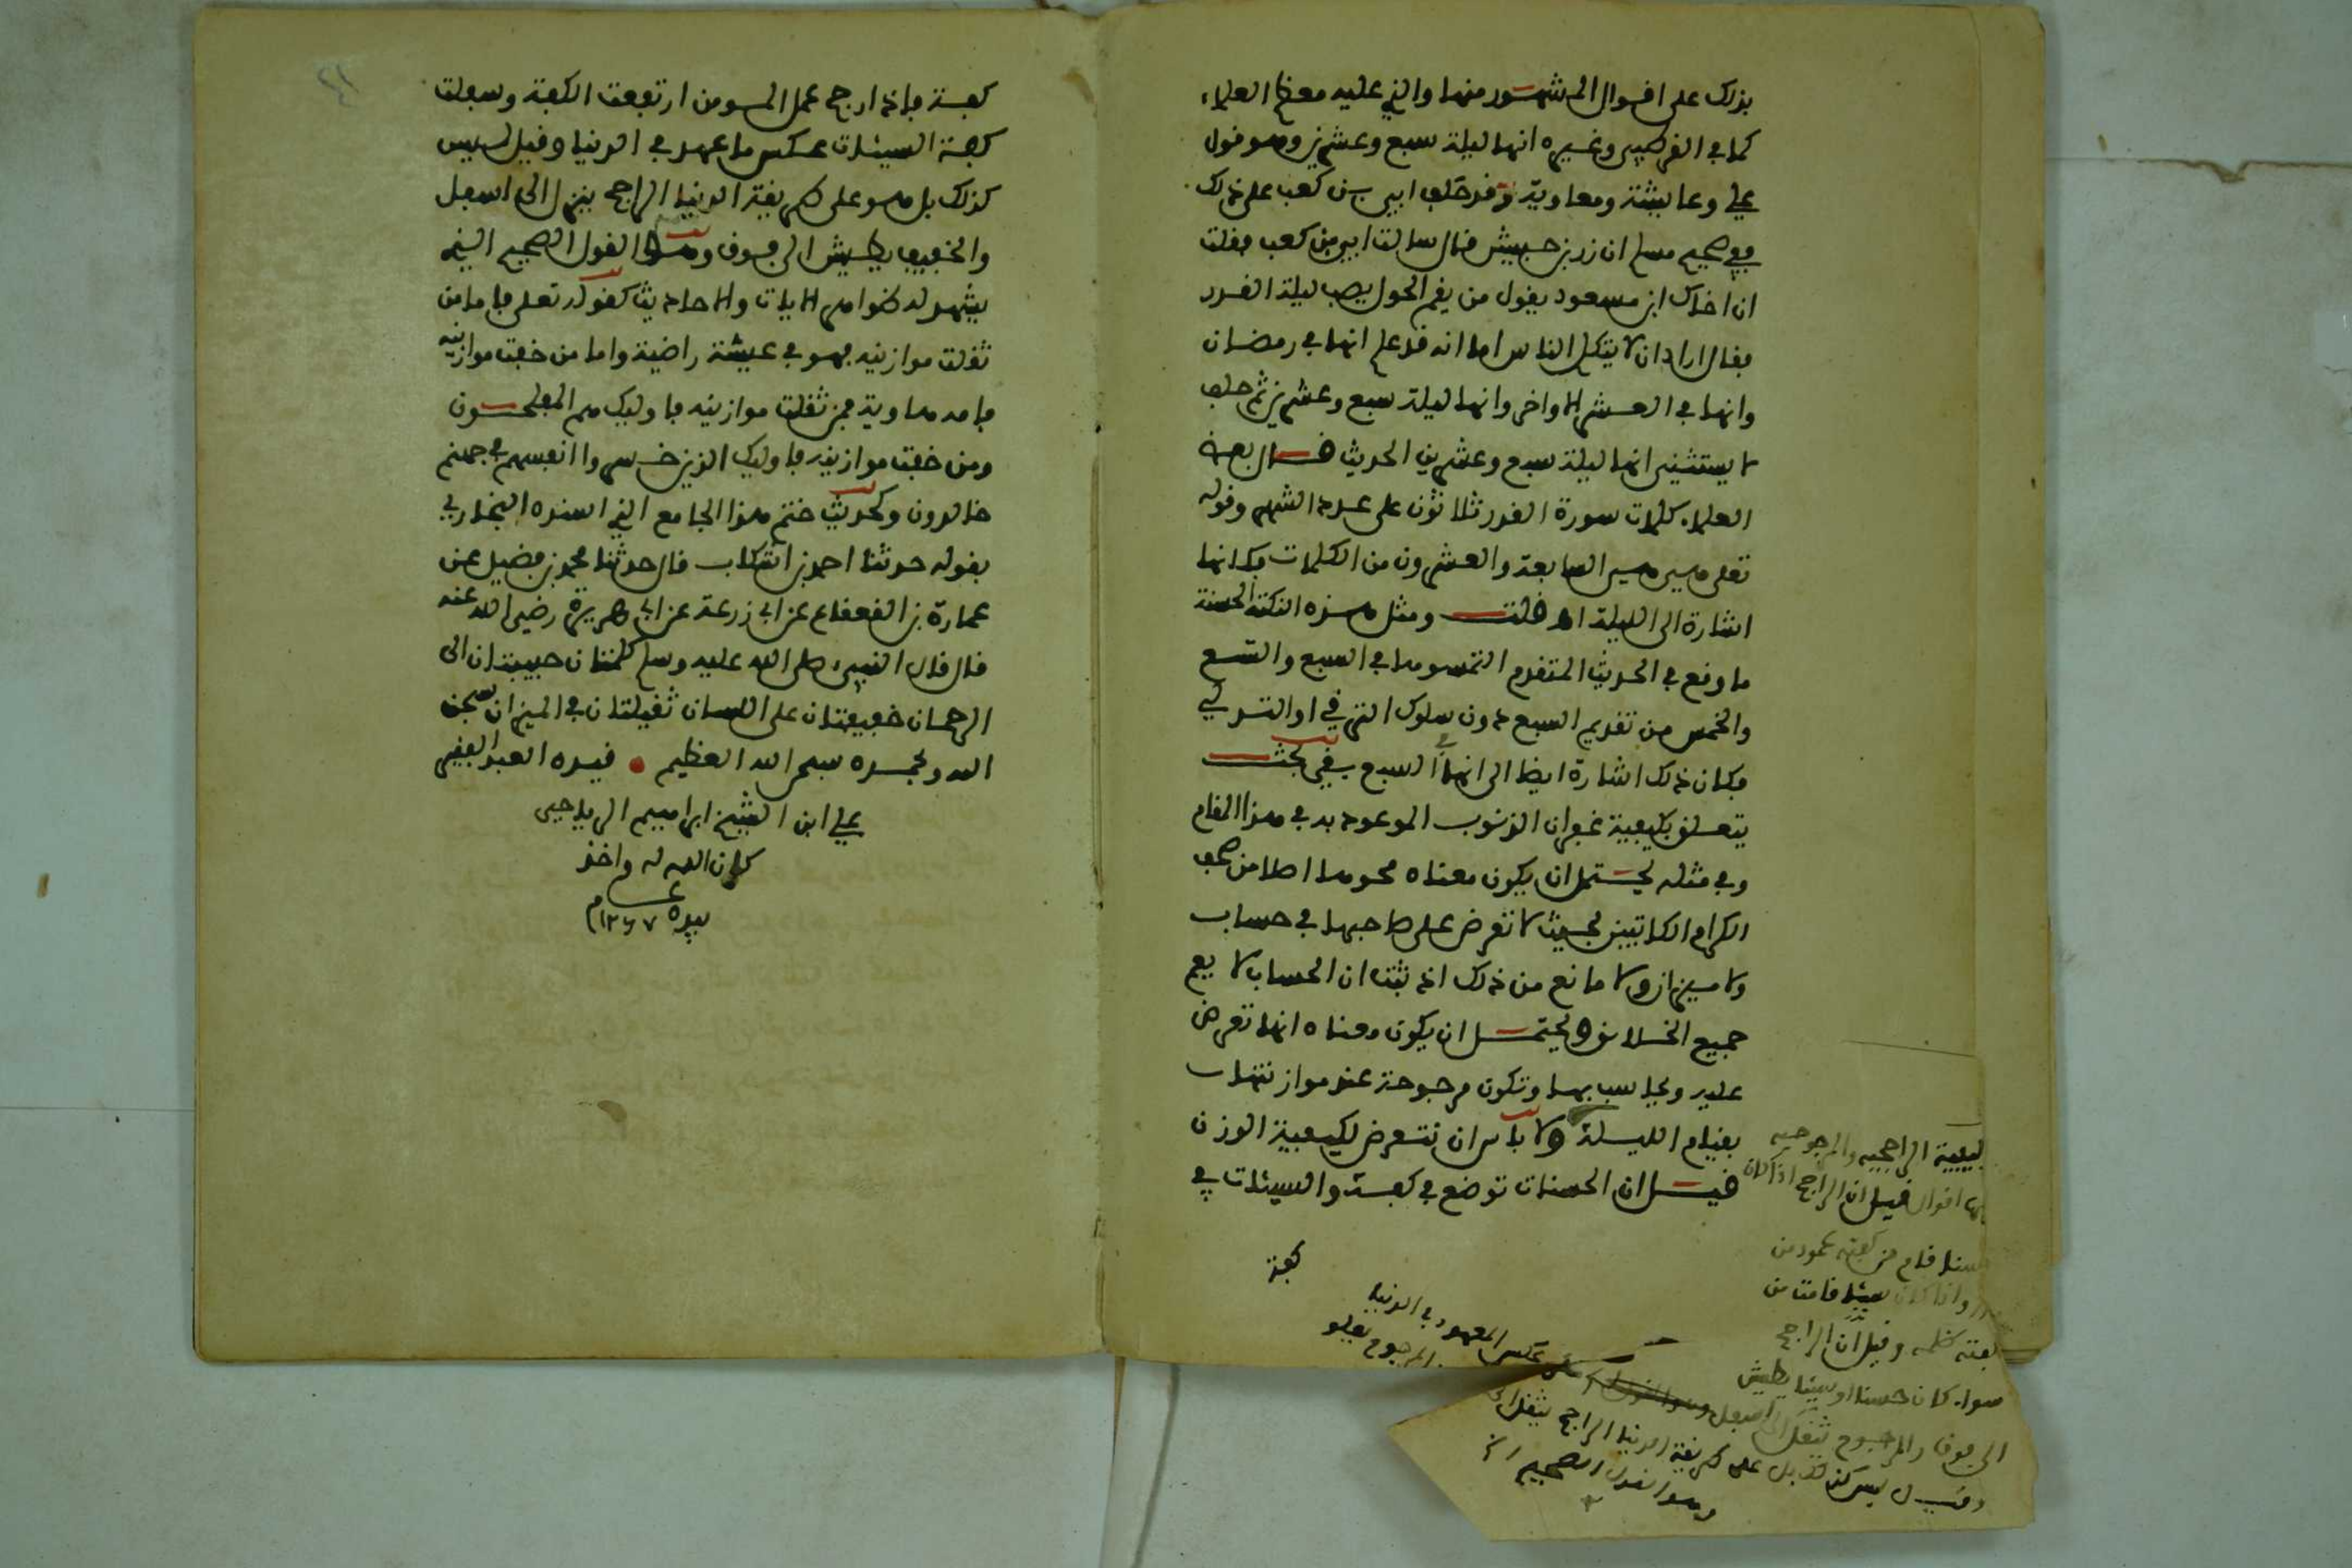 بذلك على اقوال المشهور منها والذي عليه معظم العلماء
كما في القرطبي وغيره انها ليلة سبع وعشرين وهو قول
علي وعايشة ومعاوية وقد حلف ابي بن كعب على ذلك
ففي صحيح مسلم ان زر بن حبيش قال سالت ابي بن كعب فقلت
ان اخاك ابن مسعود يقول من يقم الحول يصب ليلة القدر
فقال اراد ان لا يتكل الناس اما انه قد علم انها في رمضان
وانها في العشر الاواخر وانها ليلة سبع وعشرين ثم حلف
لا يستثني انها ليلة سبع وعشرين الحديث قال بعض
العلماء كلمات سورة القدر ثلاثون على عدد الشهر وقوله
تعلى هي هي السابعة والعشرون من الكلمات فكانها
اشارة الى الليلة اه قلت ومثل هذه النكتة الحسنة
ما وقع في الحديث المتقدم التمسوها في السبع والتسع
والخمس من تقديم السبع دون سلوك الترقي او التدلي
فكان ذلك اشارة ايضا الى انها في السبع بقي بحث
يتعلق بكيفية غفران الذنوب الموعود به في هذا المقام
وفي مثله يحتمل ان يكون معناه محوها اصلا من صحف
الكرام الكاتبين بحيث لا تعرض على صاحبها في حساب
ولا ميزان ولا مانع من ذلك اذ ثبت ان الحساب لا يعم
جميع الخلائق ويحتمل ان يكون معناه انها تعرض
عليه ويحاسب بها وتكون مرجوحة عند موازنتها
بقيام الليلة ولا باس ان نتعرض لكيفية الوزن
قيل ان الحسنات توضع في كفة والسيئات في
كفة
كيفية الراجحيه والمرجوحيه
اقوال قيل ان الراجح اذا كان
حسنا قام من كفته عمود من
واذا كان سيئا قامت من
كفته ظلمه وقيل ان الراجح
سواء كان حسنا او سيئا يطيش
الى فوق والمرجوح يثقل الى اسفل
عكس المعهود في الدنيا
المرجوح يعلو
وقيل ليس كذلك بل على طريقة الدنيا الراجح يثقل
وهو القول الصحيح
كفة فاذا رجح عمل المومن ارتفعت الكفة وسفلت
كفة السيئات عكس ما عهد في الدنيا وقيل ليس
كذلك بل هو على طريقة الدنيا الراجح ينزل الى اسفل
والخفيف يطيش الى فوق وهو القول الصحيح الذي
يشهد له ظواهر الايات والاحاديث كقوله تعلى فاما من
ثقلت موازينه فهو في عيشة راضية واما من خفت موازينه
فامه هاوية فمن ثقلت موازينه فاوليك هم المفلحون
ومن خفت موازينه فاوليك الذين خسروا انفسهم في جهنم
خالدون وكحديث ختم هذا الجامع الذي اسنده البخاري
بقوله حدثنا احمد بن اشكاب قال حدثنا محمد بن فضيل عن
عمارة بن القعقاع عن ابي زرعة عن ابي هريرة رضي الله عنه
قال قال النبي صلى الله عليه وسلم كلمتان حبيبتان الى
الرحمان خفيفتان على اللسان ثقيلتان في الميزان سبحن
الله وبحمده سبحن الله العظيم قيده العبد الفقير
علي ابن الشيخ ابراهيم الرياحي
كان الله له واخذ
بيده ١٢٦٧